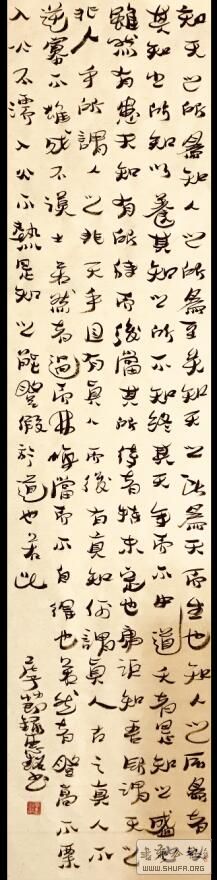 知天之所為知人之所為至矣知天之所為天而生也知人之所為者
其知之所知以養其知之所不知終其天年而不中道夭者是知之盛也
雖然有患夫知有所待而後當其所待者特未定也庸詎知吾所謂天之
非人乎所謂人之非天乎且有真人而後有真知何謂真人古之真人不
逆寡不雄成不謨士若然者過而弗悔當而不自得也若然者登高不慄
入水不濡入火不熱是知之能登假於道也若此
書
WWW.SHUFA.ORG